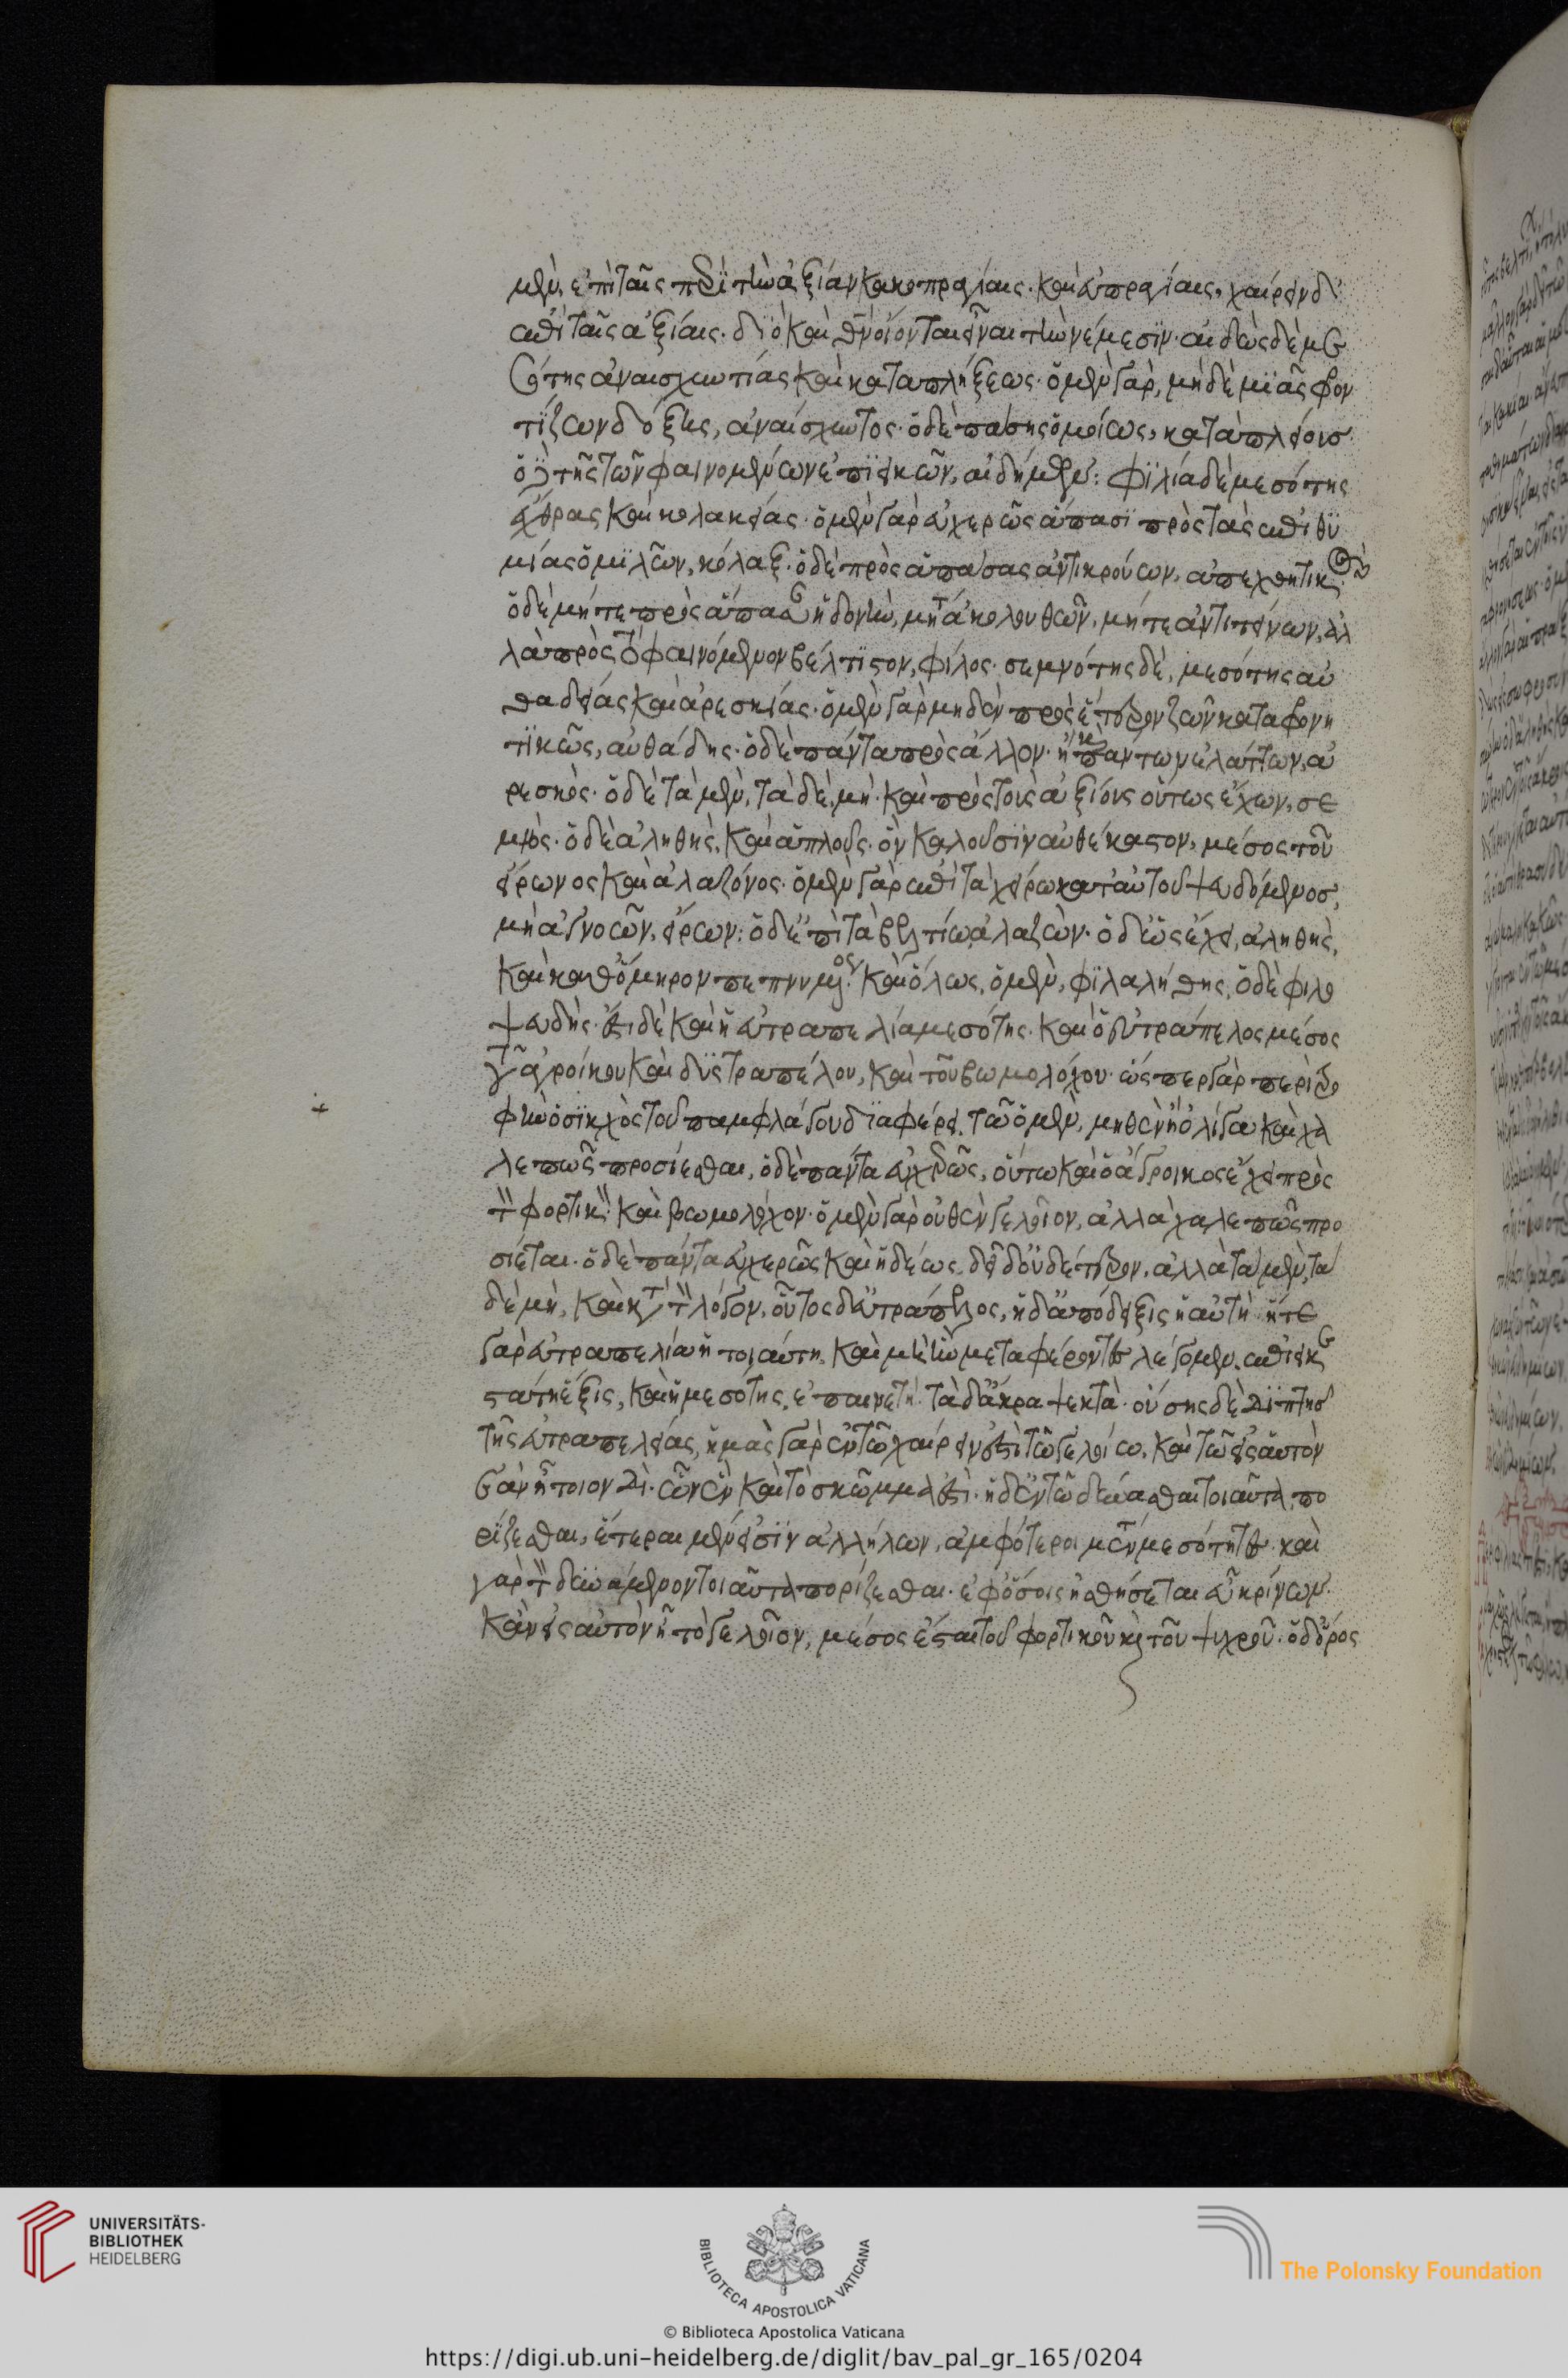 μὲν ἐπὶ ταῖς παρὰ τὴν ἀξίαν κακοπραγίαις. καὶ εὐπραγίαις, χαίρειν δ'
ἐπὶ ταῖς ἀξίαις. διὸ καὶ θεὸν οἴονται εἶναι τὴν νέμεσιν. αἰδὼς δὲ με
σότης ἀναισχυντίας καὶ καταπλήξεως. ὁ μὲν γὰρ, μηδὲ μιᾶς φρον
τίζων δόξης, ἀναίσχυντος. ὁ δὲ πάσης ὁμοίως, καταπλὴξ
ὁ δὲ τῆς τῶν φαινομένων ἐπιεικῶν, αἰδήμων: φιλία δὲ μεσότης
ἔχθρας καὶ κολακείας. ὁ μὲν γὰρ εὐχερῶς ἅπασι πρὸς τὰς ἐπιθυ
μίας ὁμιλῶν, κόλαξ. ὁ δὲ πρὸς ἁπάσας ἀντικρούων, ἀπεχθητικὸς
ὁ δὲ μήτε πρὸς ἅπασαν ἡδονὴν, μήτ' ἀκολουθῶν, μήτε ἀντιτείνων, ἀλ
λὰ πρὸς τὸ φαινόμενον βέλτιστον, φίλος. σεμνότης δὲ, μεσότης αὐ
θαδείας καὶ ἀρεσκείας. ὁ μὲν γὰρ μηδὲν πρὸς ἕτερον ζῶν καταφρονη
τικῶς, αὐθάδης. ὁ δὲ πάντα πρὸς ἄλλον. ἢ καὶ πάντων ἐλάττων, ἄ
ρεσκος. ὁ δὲ τὰ μὲν, τὰ δὲ, μή. καὶ πρὸς τοὺς ἀξίους οὕτως ἔχων, σε
μνός. ὁ δὲ ἀληθὴς, καὶ ἁπλοῦς. ὃν καλοῦσιν αὐθέκαστον, μέσος τοῦ
εἴρωνος καὶ ἀλαζόνος. ὁ μὲν γὰρ ἐπὶ τὰ χείρω κατ' αὐτοῦ ψευδόμενος,
μὴ ἀγνοῶν, εἴρων: ὁ δ' ἐπὶ τὰ βελτίω ἀλαζών. ὁ δ' ὡς ἔχει, ἀληθὴς,
καὶ καθ' ὅμηρον πεπνυμένος. καὶ ὅλως, ὁ μὲν, φιλαλήθης, ὁ δὲ φιλο
ψευδής. ἔστι δὲ καὶ ἡ εὐτραπελία μεσότης. καὶ ὁ εὐτράπελος μέσος
τοῦ ἀγροίκου καὶ δυστραπέλου, καὶ τοῦ βωμολόχου. ὥσπερ γὰρ περὶ τρο
φὴν ὁ σικχὸς τοῦ παμφάγου διαφέρει. τῶ ὁ μὲν, μηθὲν ἢ ὀλίγα καὶ χα
λεπῶς προσίεσθαι, ὁ δὲ πάντα εὐχερῶς, οὕτω καὶ ὁ ἄγροικος ἔχει πρὸς
τὸν φορτικὸν καὶ βωμολόχον. ὁ μὲν γὰρ οὐθὲν γελοῖον, ἀλλὰ χαλεπῶς προ
σίεται. ὁ δὲ πάντα εὐχερῶς καὶ ἡδέως. δεῖ δ' οὐδέτερον. ἀλλὰ τὰ μὲν, τὰ
δὲ μή. καὶ κατὰ τὸν λόγον. οὗτος δ' εὐτράπελος, ἡ δ' ἀπόδειξις ἡ αὐτή. ἥτε
γὰρ εὐτραπελία ἡ τοιαύτη. καὶ μὴ ἣν μεταφέροντες λέγομεν. ἐπιεικε
στάτη ἕξις, καὶ ἡ μεσότης, ἐπαινετή. τὰ δ' ἄκρα ψεκτά. οὔσης δὲ διττῆς
τῆς εὐτραπελείας, ἡ μὲν γὰρ ἐν τῶ χαίρειν ἐστὶ τῶ γελοίω. καὶ τῶ εἰς αὑτὸν
ἐὰν ᾖ τοιονδί. ὧν ἓν καὶ τὸ σκῶμμα ἐστί. ἡ δ' ἐν τῶ δύνασθαι τοιαῦτα πο
ρίζεσθαι, ἕτεραι μὲν εἰσὶν ἀλλήλων, ἀμφότεροι μέντοι μεσότητες. καὶ
γὰρ τὸν δυνάμενον τοιαῦτα πορίζεσθαι. ἐφ' ὅσοις ἡσθήσεται εὖ κρίνων.
κἂν εἰς αὐτὸν ᾖ τὸ γελοῖον, μέσος ἔσται τοῦ φορτικοῦ καὶ τοῦ ψυχροῦ. ὁ δ' ὅρος
UNIVERSITÄTS-
BIBLIOTHEK
HEIDELBERG
BIBLIOTECA APOSTOLICA VATICANA
The Polonsky Foundation
© Biblioteca Apostolica Vaticana
https://digi.ub.uni-heidelberg.de/diglit/bav_pal_gr_165/0204